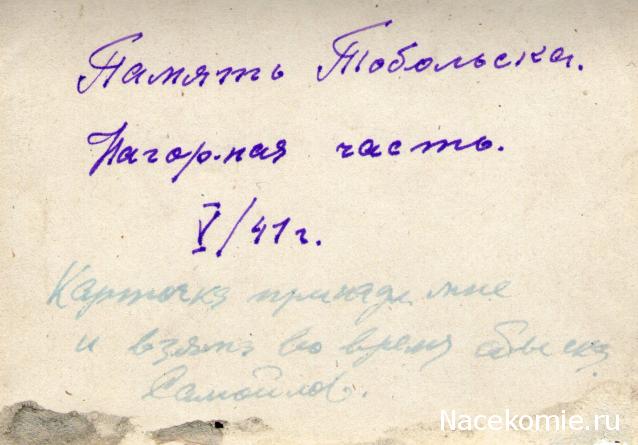 Память Тобольска.
Нагорная часть.
V/41г.
Карточка принадл. мне
и взята во время обыска
Самойлов.
Nacekomie.ru